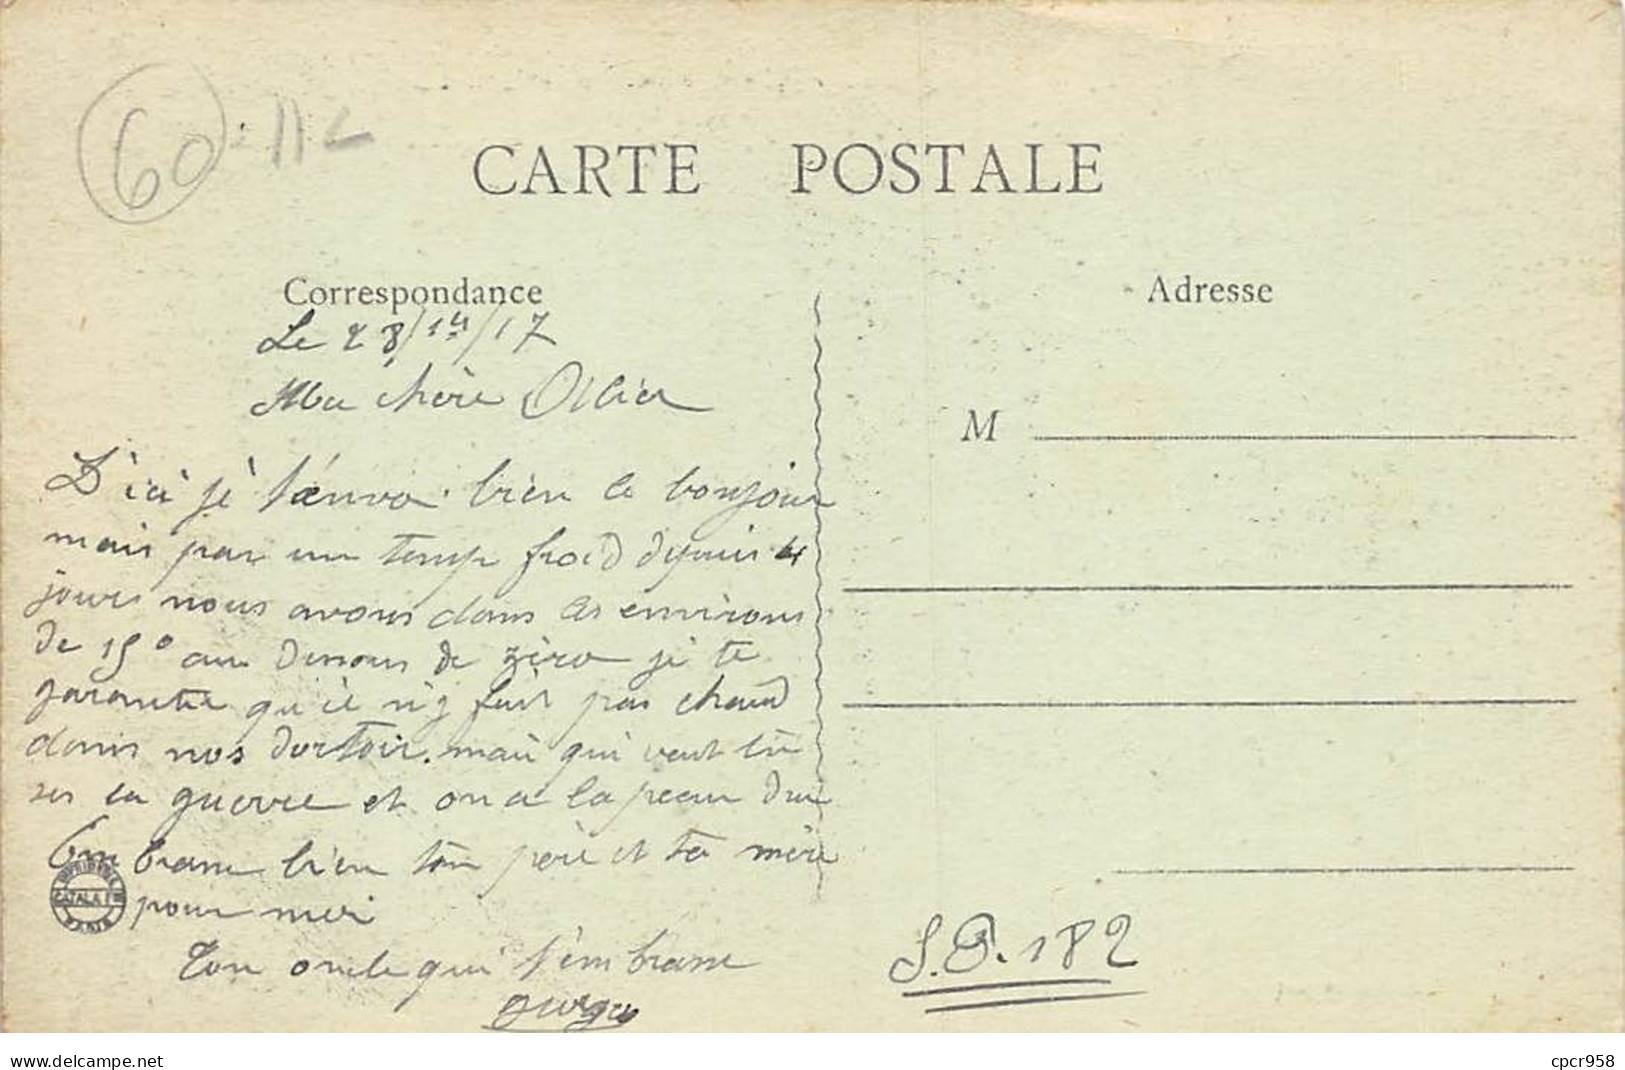 60-112
CARTE POSTALE
Correspondance
Adresse
Le 28/1/17
Ma chère
M
D'ici je t'envoi bien le bonjour
mais par un temp froid depuis 4
jours nous avons dans les environs
de 15° au dessous de zèro je te
garantie qu'ìl n'y fait pas chaud
dans nos dortoir. mais qui veut tu
ses la guerre et on a la peau dur
Embrasse bien ton père et ta mère
pour moi
Ton oncle qui t'embrasse
S.P. 182
IMPRIMERIE
CATALA
PARIS
delcampe.net
cpcr958